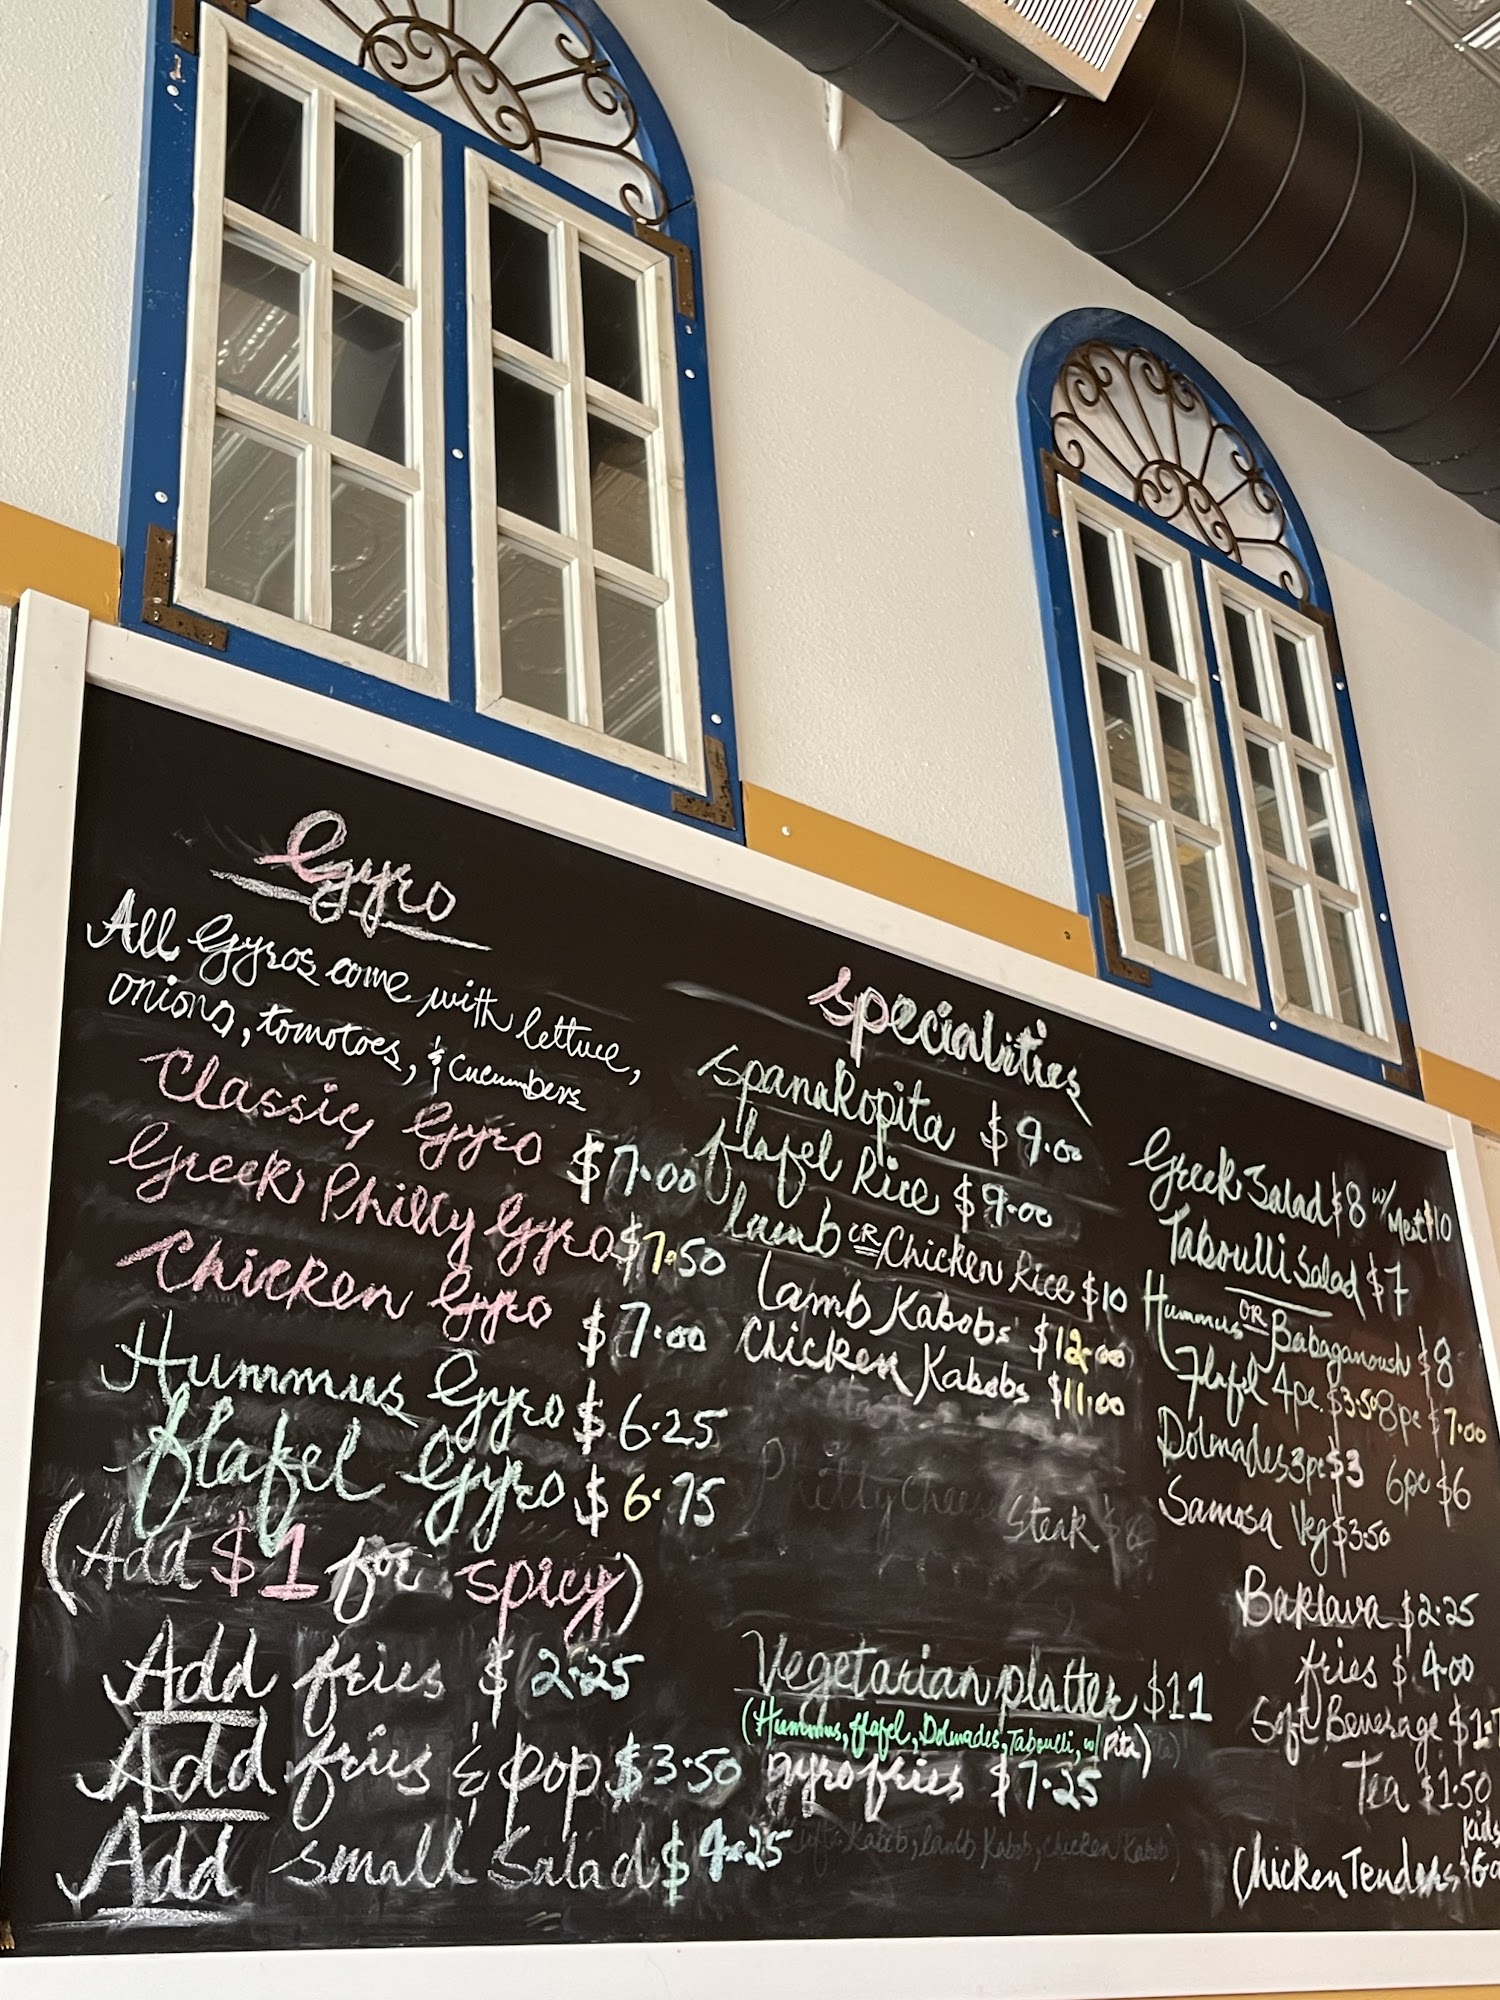 Gyro
All Gyros come with lettuce,
onions, tomotoes, & cucumbers
Classic Gyro $7.00
Greek Philly Gyro $7.50
Chicken Gyro $7.00
Hummus Gyro $6.25
flafel Gyro $6.75
(Add $1 for spicy)
Add fries $2.25
Add fries & pop $3.50
Add small Salad $4.25
Specialities
Spanakopita $9.00
flafel Rice $9.00
lamb OR Chicken Rice $10
Lamb Kabobs $12.00
Chicken Kabobs $11.00
Philly Cheese
Steak
Vegetarian platter $11
(Hummus, flafel, Dolmades, Taboulli, w/ Pita)
gyro fries $7.25
Kabob, lamb Kabob, chicken Kabob
Greek Salad $8 w/ Meat $10
Taboulli Salad $7
Hummus OR Babaganoush $8
Flafel 4pc. $3.50 8pc $7.00
Dolmades 3pc $3 6pc $6
Samosa Veg $3.50
Baklava $2.25
fries $4.00
Soft Beverage
Tea $1.50
Kids
Chicken Tenders